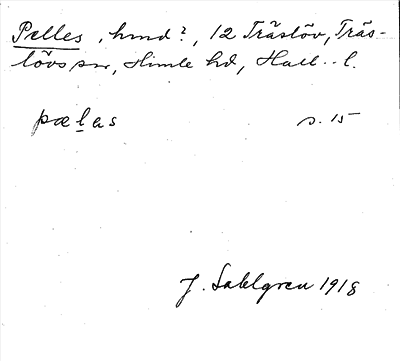 Pelles, hmd?, 12 Träslöv, Träs-
lövs sn, Himle hd, Hall. l.
pælas s. 15
J. Sahlgren 1918